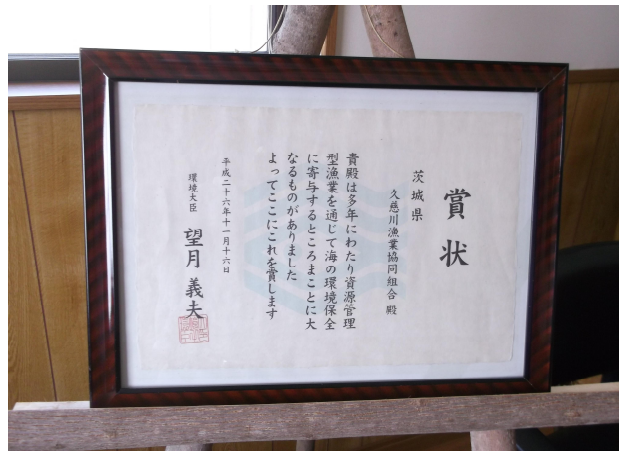 賞状
茨城県
久慈川漁業協同組合 殿
貴殿は多年にわたり資源管理
型漁業を通じて海の環境保全
に寄与するところまことに大
なるものがありました
よってここにこれを賞します
平成二十六年十一月十六日
環境大臣 望月義夫